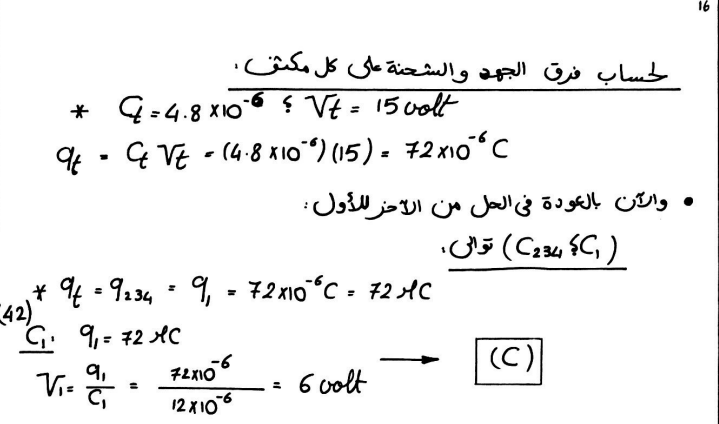 16
لحساب فرق الجهد والشحنة على كل مكثف:
* Ct = 4.8 x10^-6 ؟ Vt = 15 volt
qt = Ct Vt = (4.8 x10^-6)(15) = 72x10^-6 C
• والآن بالعودة في الحل من الآخر للأول:
(C1 ؟ C234) توالي:
* qt = q234 = q1 = 72x10^-6 C = 72 μC
(42)
C1: q1 = 72 μC
V1 = q1/C1 = 72x10^-6 / 12x10^-6 = 6 volt → (C)